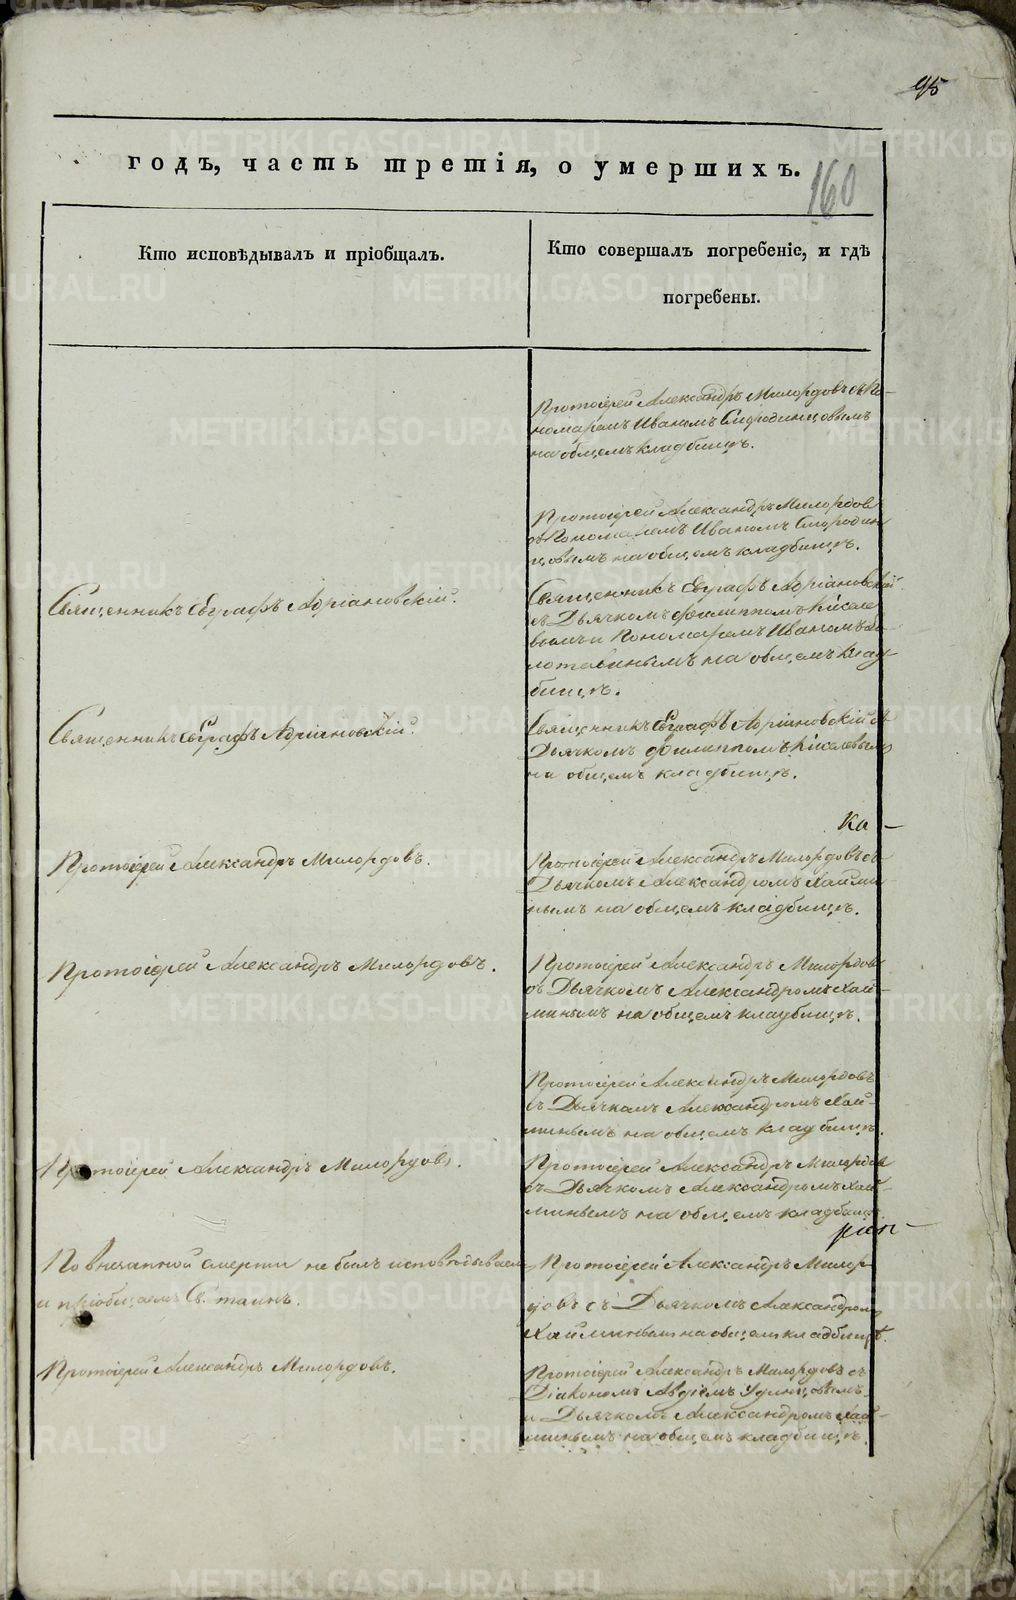 95
годъ, часть третія, о умершихъ.
160
Кто исповѣдывалъ и пріобщалъ.
Кто совершалъ погребеніе, и гдѣ
погребены.
Протоіерей Александръ Милордовъ съ По-
номаремъ Иваномъ Смородинцовымъ
на общемъ кладбищѣ.
Протоіерей Александръ Милордовъ
съ Пономаремъ Иваномъ Смородин
цовымъ на общемъ кладбищѣ.
Священникъ Евграфъ Адріановскій.
Священникъ Евграфъ Адріановскій
съ Дьячкомъ Филиппомъ Киселе
вымъ и Пономаремъ Иваномъ
на общемъ клад-
бищѣ.
Священникъ Евграфъ Адріановскій.
Священникъ Евграфъ Адріановскій съ
Дьячкомъ Филиппомъ Киселевымъ
на общемъ кладбищѣ.
Ка-
Протоіерей Александръ Милордовъ.
Протоіерей Александръ Милордовъ съ
Дьячкомъ Александромъ Хайми
нымъ на общемъ кладбищѣ.
Протоіерей Александръ Милордовъ.
Протоіерей Александръ Милордовъ
съ Дьячкомъ Александромъ Хай-
минымъ на общемъ кладбищѣ.
Протоіерей Александръ Милордовъ
съ Дьячкомъ Александромъ Хай-
минымъ на общемъ кладбищѣ.
Протоіерей Александръ Милордовъ.
Протоіерей Александръ Милордовъ
съ Дьячкомъ Александромъ Хай-
минымъ на общемъ кладбищѣ.
По внезапной смерти не былъ исповѣдываемъ
и пріобщаемъ Св. таинъ.
Протоіерей Александръ Милор
довъ съ Дьячкомъ Александромъ
Хайминымъ на общемъ кладбищѣ.
Протоіерей Александръ Милордовъ.
Протоіерей Александръ Милордовъ съ
Діакономъ Авдіемъ Удинцовымъ
и Дьячкомъ Александромъ Хай-
минымъ на общемъ кладбищѣ.
METRIKI.GASO-URAL.RU